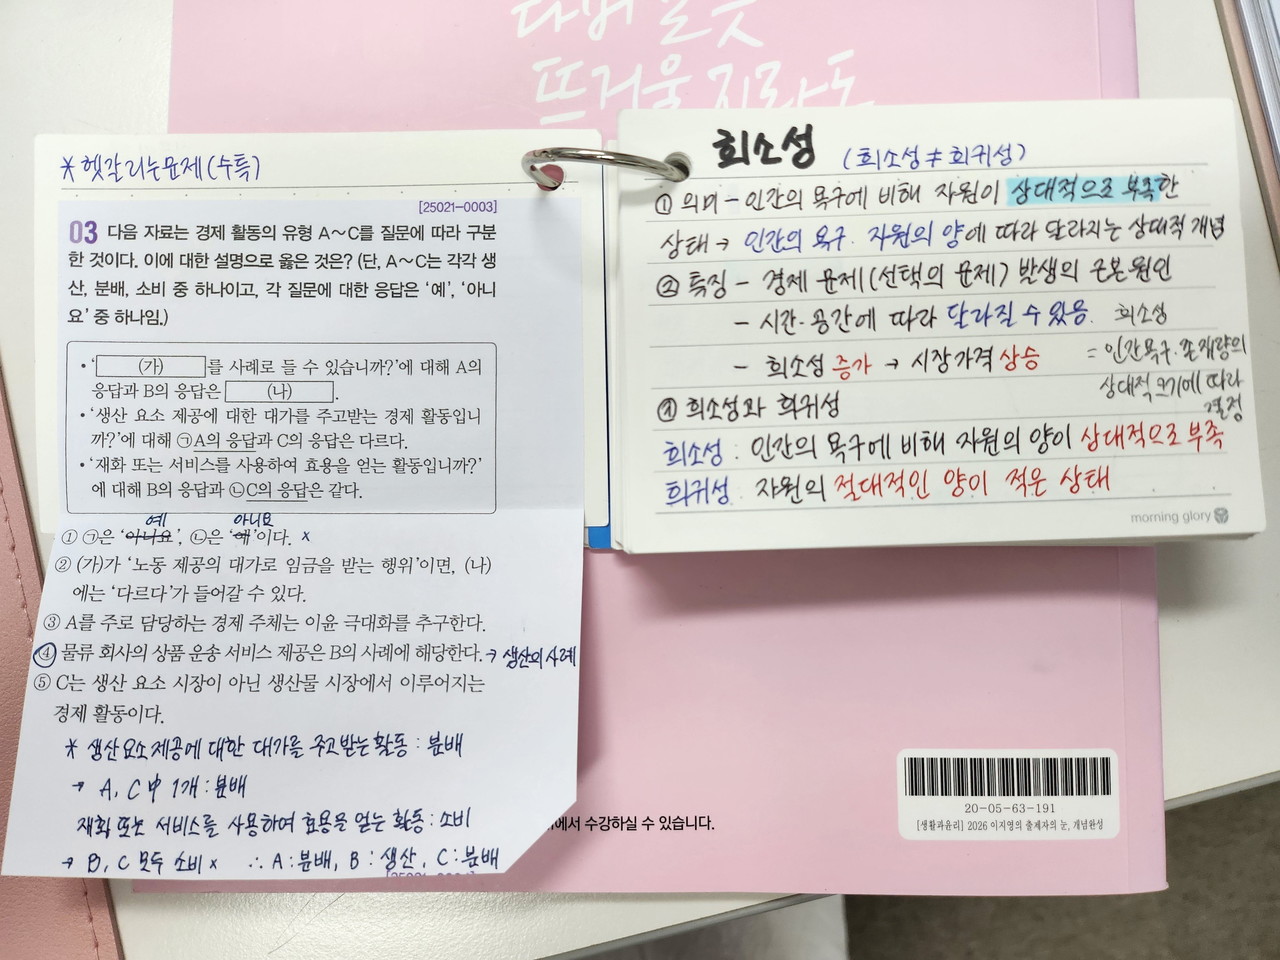 다시 못
뜨거울지라도
*헷갈리는문제(수특)
[25021-0003]
03 다음 자료는 경제 활동의 유형 A~C를 질문에 따라 구분
한 것이다. 이에 대한 설명으로 옳은 것은? (단, A~C는 각각 생
산, 분배, 소비 중 하나이고, 각 질문에 대한 응답은 '예', '아니
요' 중 하나임.)
• '(가)를 사례로 들 수 있습니까?'에 대해 A의
응답과 B의 응답은 (나).
• '생산 요소 제공에 대한 대가를 주고받는 경제 활동입니
까?'에 대해 ㉠A의 응답과 C의 응답은 다르다.
• '재화 또는 서비스를 사용하여 효용을 얻는 활동입니까?'
에 대해 B의 응답과 ㉡C의 응답은 같다.
예 아니요
① ㉠은 '아니요', ㉡은 '예'이다. x
② (가)가 '노동 제공의 대가로 임금을 받는 행위'이면, (나)
에는 '다르다'가 들어갈 수 있다.
③ A를 주로 담당하는 경제 주체는 이윤 극대화를 추구한다.
④ 물류 회사의 상품 운송 서비스 제공은 B의 사례에 해당한다. → 생산의 사례
⑤ C는 생산 요소 시장이 아닌 생산물 시장에서 이루어지는
경제 활동이다.
* 생산요소제공에 대한 대가를 주고받는 활동 : 분배
→ A, C 中 1개 : 분배
재화 또는 서비스를 사용하여 효용을 얻는 활동 : 소비
→ B, C 모두 소비 x ∴ A : 분배, B : 생산, C : 분배
희소성 (희소성≠희귀성)
① 의미 - 인간의 욕구에 비해 자원이 상대적으로 부족한
상태 → 인간의 욕구· 자원의 양에 따라 달라지는 상대적 개념
② 특징 - 경제 문제(선택의 문제) 발생의 근본원인
- 시간·공간에 따라 달라질 수 있음. 희소성
- 희소성 증가 → 시장가격 상승 = 인간욕구·존재량의
상대적 크기에 따라
결정
③ 희소성과 희귀성
희소성 : 인간의 욕구에 비해 자원의 양이 상대적으로 부족
희귀성 : 자원의 절대적인 양이 적은 상태
morning glory
에서 수강하실 수 있습니다.
20-05-63-191
[생활과윤리] 2026 이지영의 출제자의 눈, 개념완성